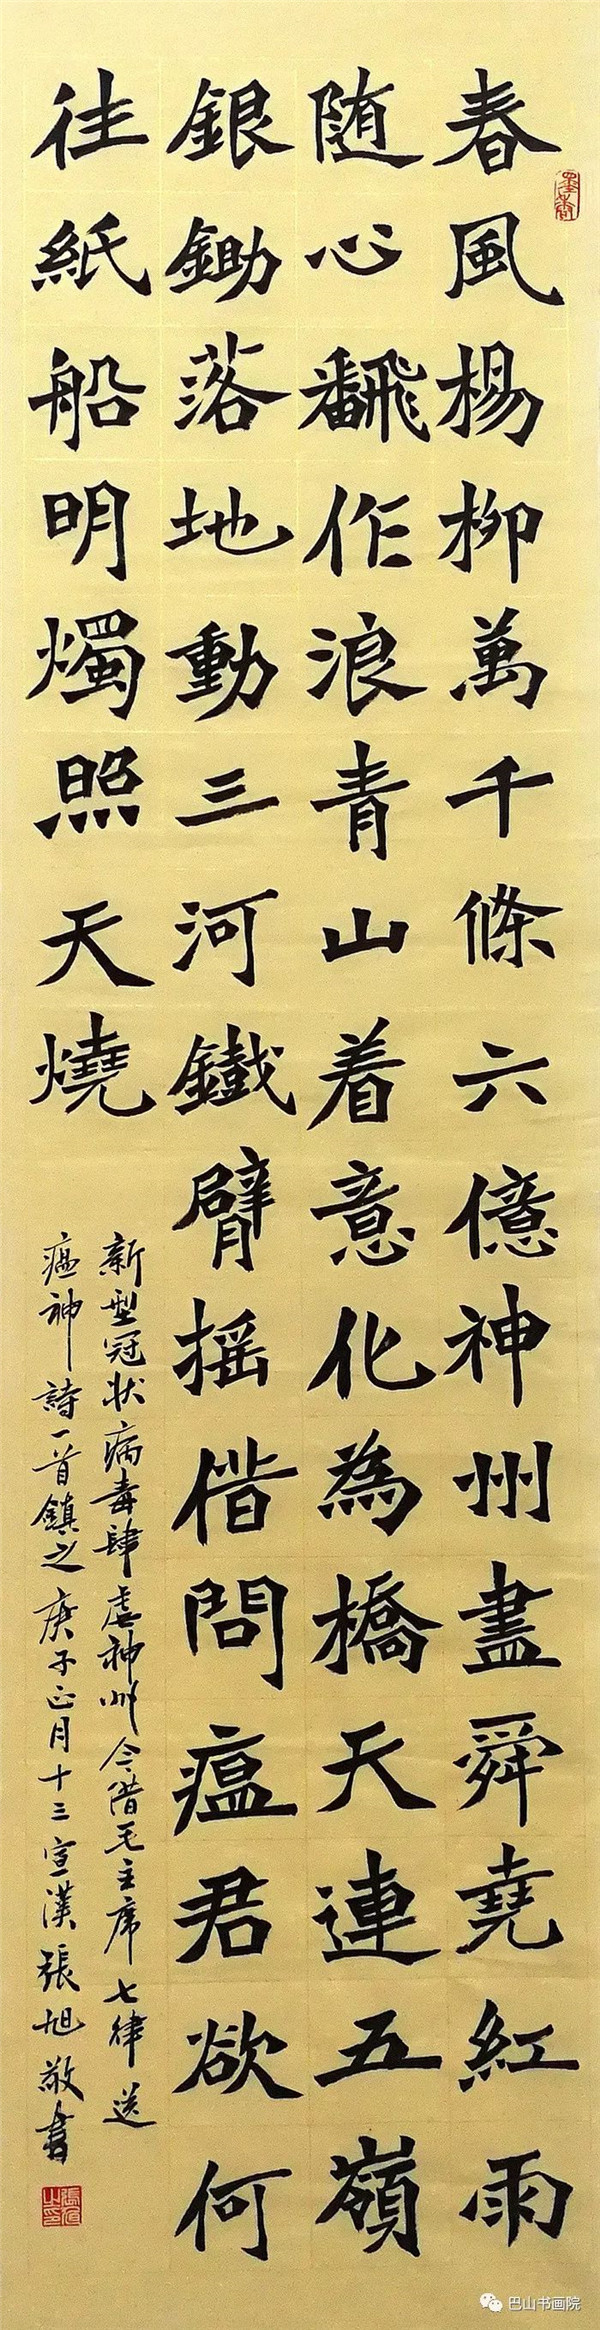 春風楊柳萬千條六億神州盡舜堯紅雨
随心飜作浪青山着意化為橋天連五嶺
銀鋤落地動三河鐵臂摇借問瘟君欲何
往紙船明燭照天燒
新型冠状病毒肆虐神州今借毛主席七律送
瘟神詩一首鎮之庚子正月十三宣漢張旭敬書
墨香
張旭之印
巴山书画院